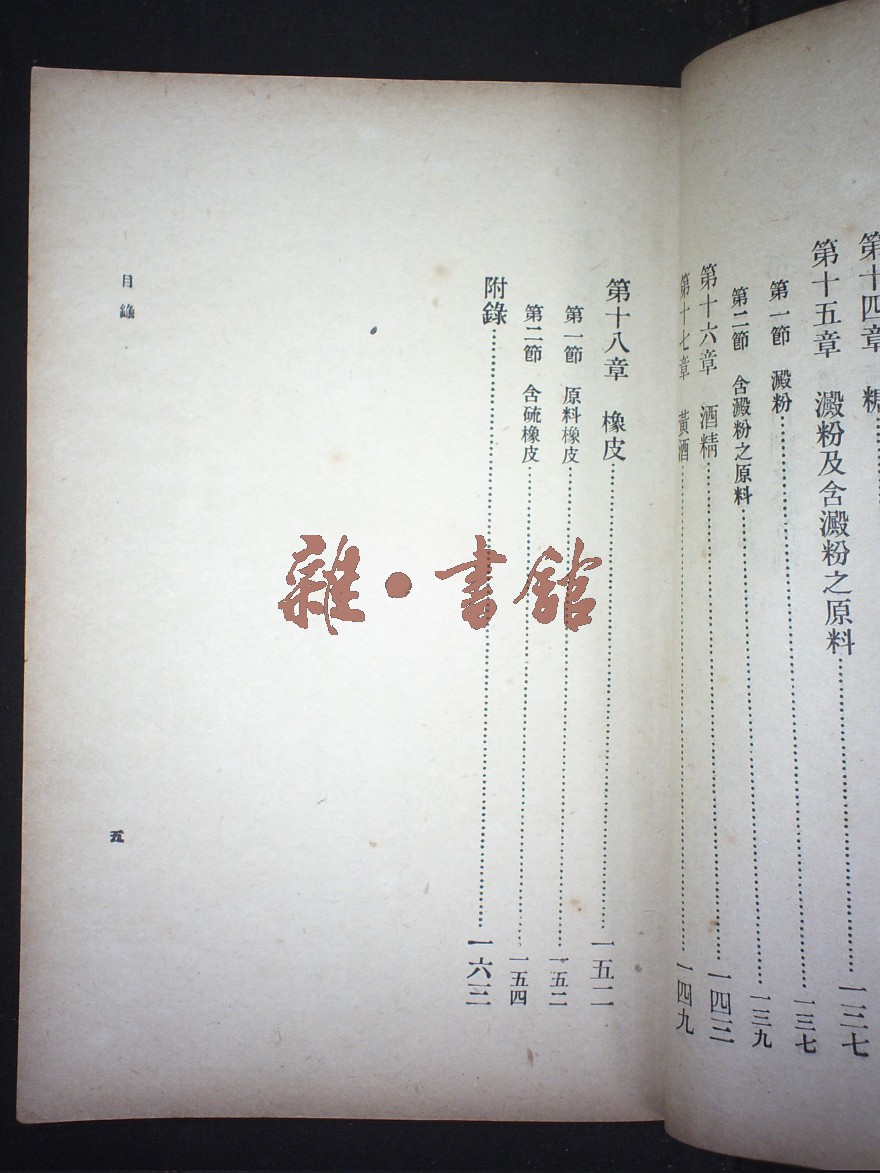 第十四章　糖
第十五章　澱粉及含澱粉之原料……一三七
第一節　澱粉……一三七
第二節　含澱粉之原料……一三九
第十六章　酒精……一四三
第十七章　黃酒……一四九
第十八章　橡皮……一五二
第一節　原料橡皮……一五二
第二節　含硫橡皮……一五四
附錄……一六三
目錄
五
雜·書館